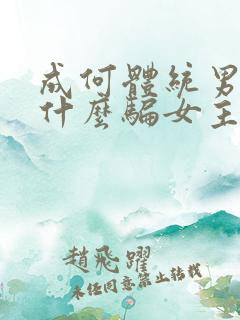 成何體統男
什麼騙女主
趙飛躍
未經同意禁止轉載